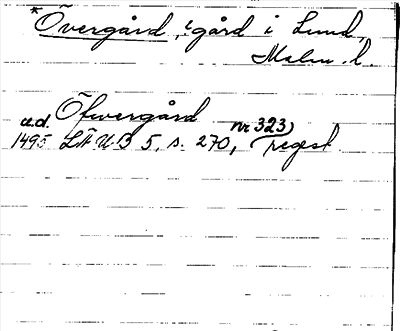 * Övergård, gård i Lund,
Malm. l.
Öfwergård
u.d.
1495 LÄUB 5, s. 270, nr 323, regest.